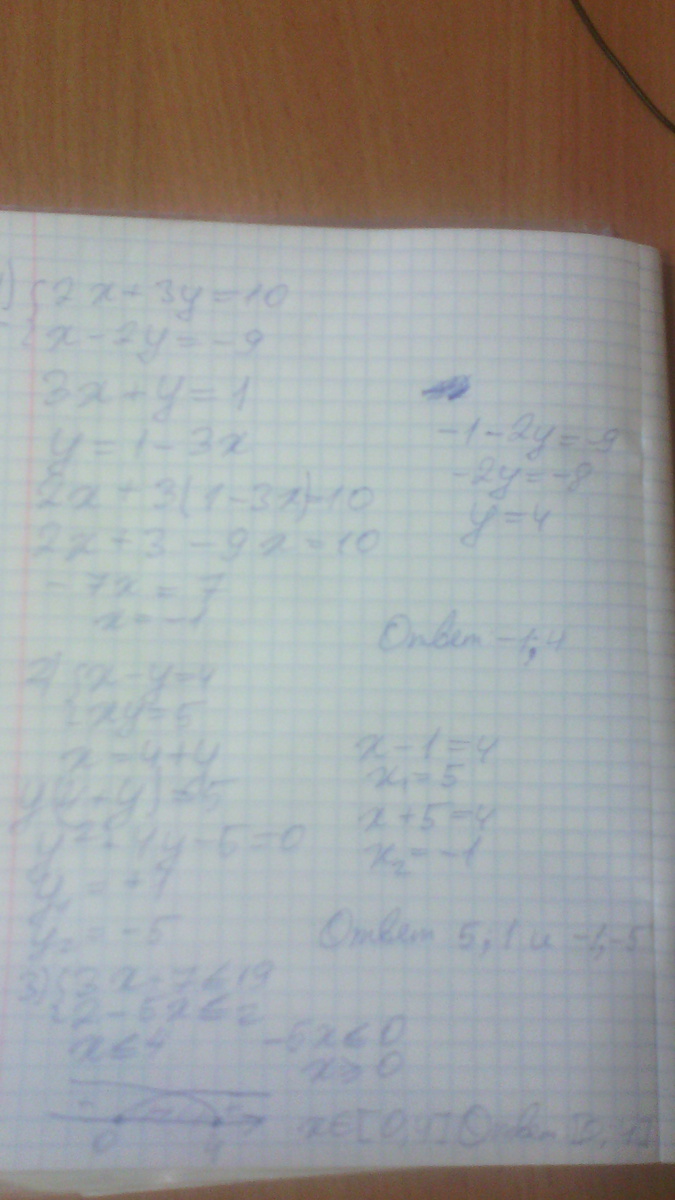 1) { 2x + 3y = 10
x - 2y = -9
3x + y = 1
y = 1 - 3x
2x + 3(1 - 3x) = 10
2x + 3 - 9x = 10
- 7x = 7
x = -1
-1 - 2y = -9
-2y = -8
y = 4
Ответ -1; 4
2) { x - y = 4
xy = 5
x = 4 + y
y(4 + y) = 5
y² + 4y - 5 = 0
y₁ = +1
y₂ = -5
x - 1 = 4
x₁ = 5
x + 5 = 4
x₂ = -1
Ответ 5; 1 и -1; -5
3)
x ≤ 4
-5x ≤ 0
x ≥ 0
0 4
x ∈ [0, 4] Ответ [0, 4]